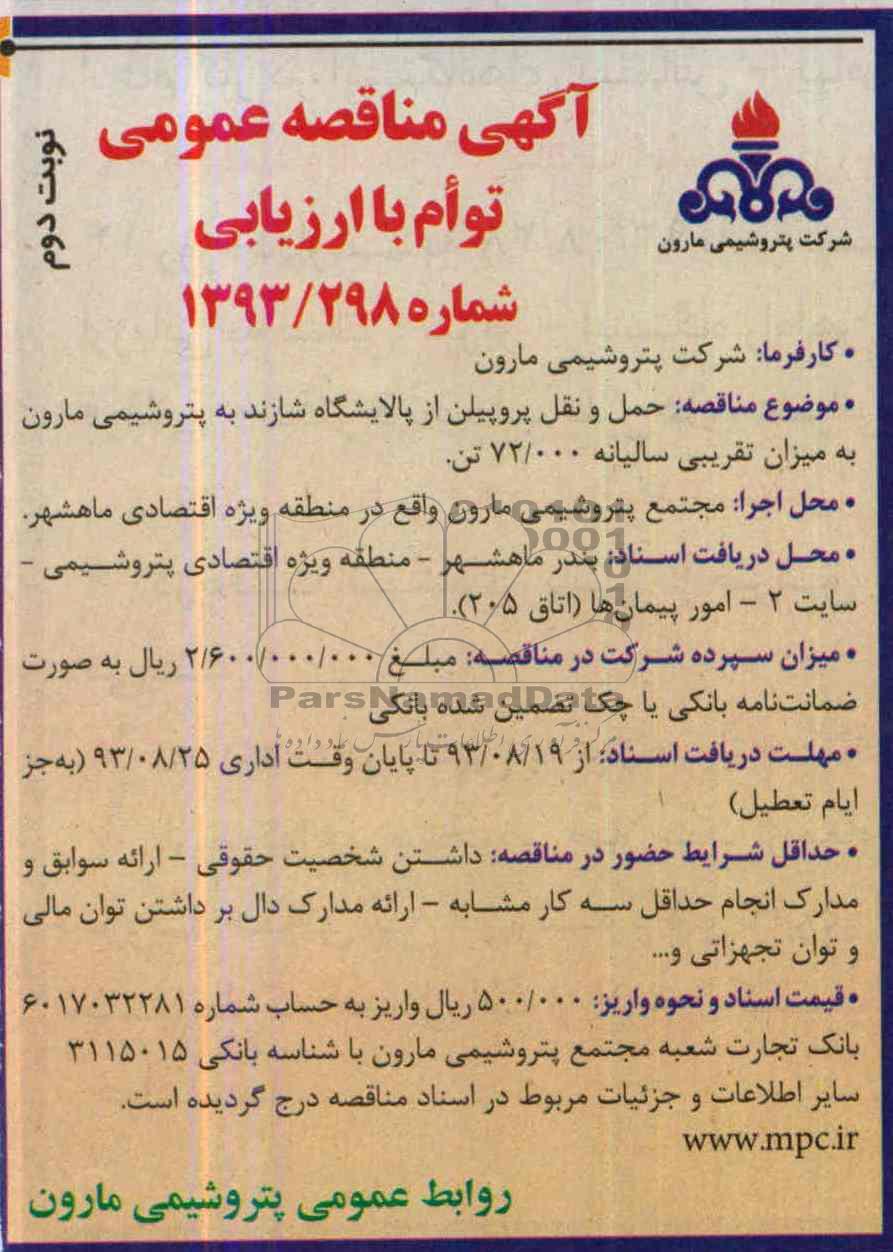 آگهی مناقصه عمومی
توأم با ارزیابی
شماره ۱۳۹۳/۲۹۸
نوبت دوم
شرکت پتروشیمی مارون
• کارفرما: شرکت پتروشیمی مارون
• موضوع مناقصه: حمل و نقل پروپیلن از پالایشگاه شازند به پتروشیمی مارون
به میزان تقریبی سالیانه ۷۲/۰۰۰ تن.
• محل اجرا: مجتمع پتروشیمی مارون واقع در منطقه ویژه اقتصادی ماهشهر.
• محل دریافت اسناد: بندر ماهشهر - منطقه ویژه اقتصادی پتروشیمی -
سایت ۲ - امور پیمان‌ها (اتاق ۲۰۵).
• میزان سپرده شرکت در مناقصه: مبلغ ۲/۶۰۰/۰۰۰/۰۰۰ ریال به صورت
ParsNamadData
ضمانت‌نامه بانکی یا چک تضمین شده بانکی
مرکز فرآوری اطلاعات پارس نماد داده ها
• مهلت دریافت اسناد: از ۹۳/۰۸/۱۹ تا پایان وقت اداری ۹۳/۰۸/۲۵ (به‌جز
ایام تعطیل)
• حداقل شرایط حضور در مناقصه: داشتن شخصیت حقوقی - ارائه سوابق و
مدارک انجام حداقل سه کار مشابه - ارائه مدارک دال بر داشتن توان مالی
و توان تجهزاتی و...
• قیمت اسناد و نحوه واریز: ۵۰۰/۰۰۰ ریال واریز به حساب شماره ۶۰۱۷۰۳۲۲۸۱
بانک تجارت شعبه مجتمع پتروشیمی مارون با شناسه بانکی ۳۱۱۵۰۱۵
سایر اطلاعات و جزئیات مربوط در اسناد مناقصه درج گردیده است.
www.mpc.ir
روابط عمومی پتروشیمی مارون